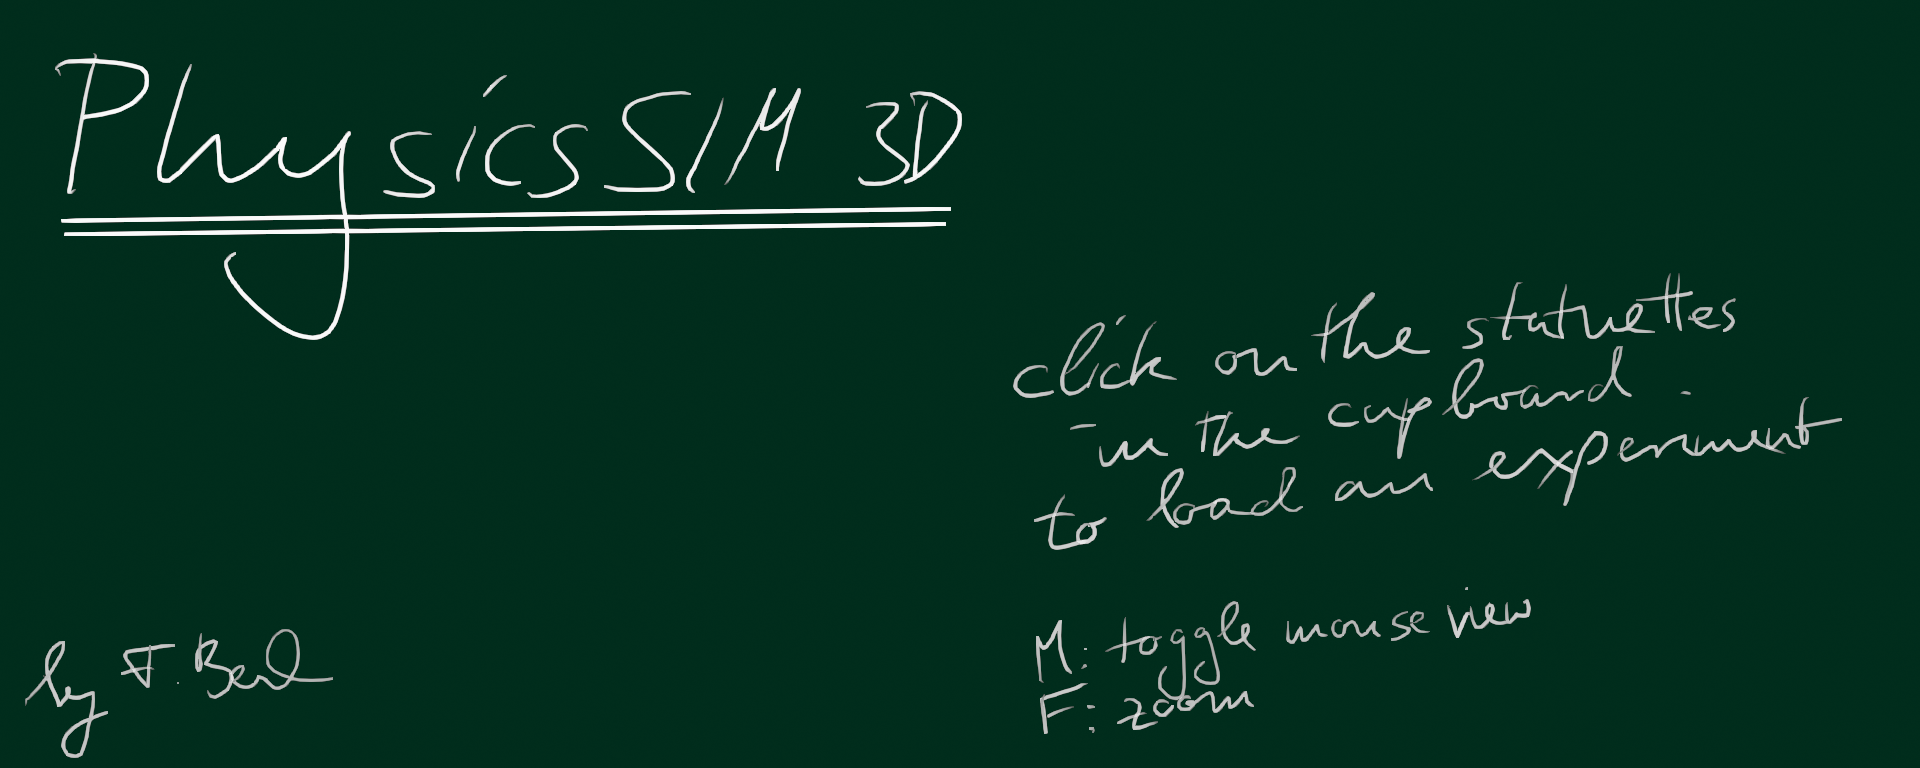 PhysicsSIM 3D
click on the statuettes
in the cupboard.
to load an experiment
M: toggle mouse view
F: zoom
by F.